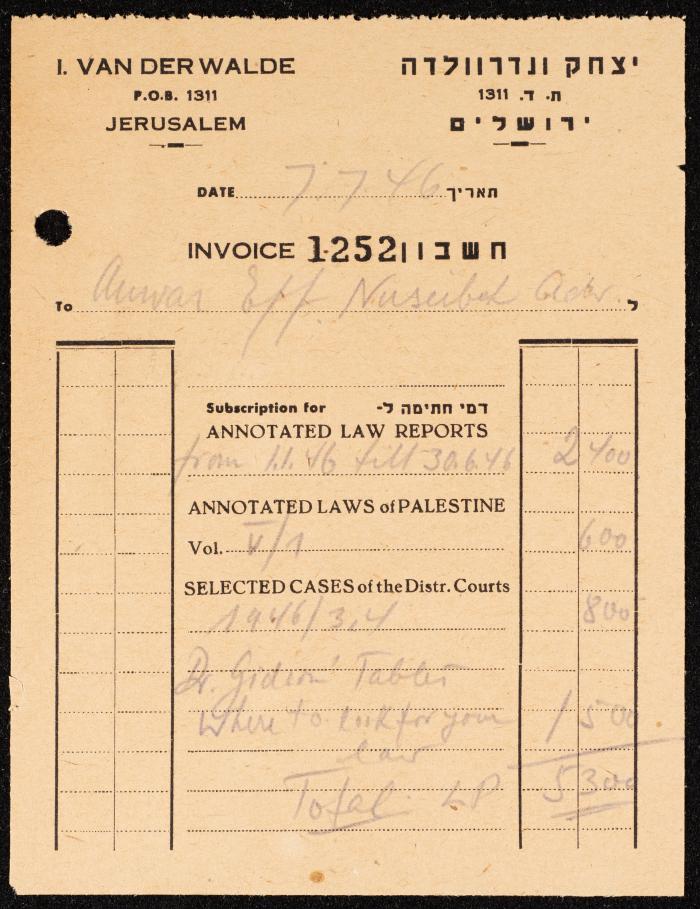 I. VAN DER WALDE
P.O.B. 1311
JERUSALEM
יצחק ונדרוולדה
ת. ד. 1311
ירושלים
DATE 7.7.46 תאריך
INVOICE 1252 חשבון
To Anwar Eff. Nuseibeh Adv. ל
Subscription for דמי חתימה ל-
ANNOTATED LAW REPORTS
from 1.1.46 till 30.6.46 2 400
ANNOTATED LAWS of PALESTINE
Vol. V/1 600
SELECTED CASES of the Distr. Courts
1946/3,4 800
Dr. Gideon' Tables
Where to look for your 1 500
law
Total LP 5300